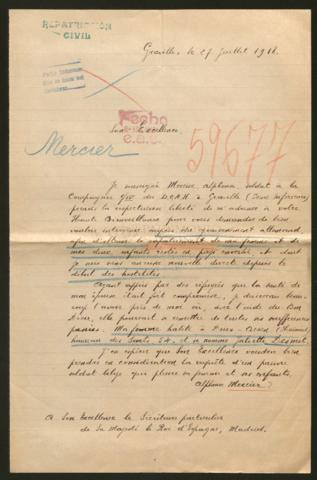 REPATRIACIÓN
CIVIL
Graville, le 27 Juillet 1916.
Fecho
Son Excellence,
59677
Mercier
Je soussigné Mercier, Alphonse, soldat à la
Compagnie du D.R.A.H. à Graville (Seine Inférieure)
prends la respectueuse liberté de m'adresser à votre
Haute Bienveillance pour vous demander de bien
vouloir intervenir auprès du gouvernement allemand
afin d'obtenir le rapatriement de ma femme et de
mes deux enfants restés en pays envahi et dont
je n'ai reçu aucune nouvelle directe depuis le
début des hostilités.
Ayant appris par des réfugiés que la santé de
mon épouse était fort compromise, je désirerais beau-
coup l'avoir près de moi où, avec l'aide du bon
Dieu, elle pourrait se remettre de toutes ses souffrances
passées. Ma femme habite à
et se nomme Juliette Desmet.
J'ose espérer que Son Excellence voudra bien
prendre en considération la requête d'un pauvre
soldat belge qui pleure sa femme et ses enfants.
Alphonse Mercier
A Son Excellence le Secrétaire particulier
de Sa Majesté le Roi d'Espagne, Madrid.